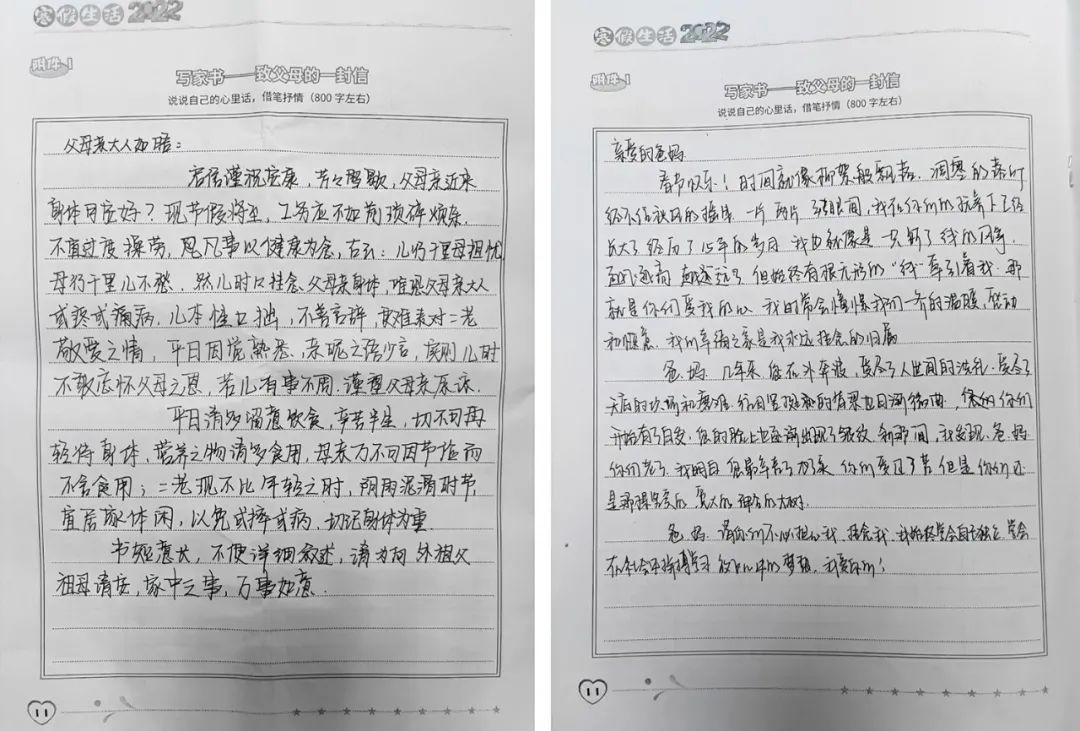 寒假生活2022
附件1
写家书——致父母的一封信
说说自己的心里话，借笔抒情（800字左右）
父母亲大人如晤：
启信谨祝安康，劳久思歇，父母亲近来
身体可应好？现节假将至，工务应不如前琐碎烦杂，
不宜过度操劳，凡事以健康为念，古云：儿行千里母担忧
母行千里儿不愁．然儿时时挂念父母亲身体，唯恐父母亲大人
或疼或痛病，儿本性口拙，不善言辞，故难表对二老
敬爱之情，平日因觉熟悉、亲昵之语少言，实则儿时
不敢忘怀父母之恩，若儿有事不周．谨望父母亲原谅．
平日请多留意饮食，辛苦半生，切不可再
轻待身体，营养之物请多食用．母亲万不可因节俭而
不舍食用；二老现不比年轻之时，阴雨泥滑时节，
宜居家休闲，以免或摔或病，切记身体为重．
书短意长，不便详细叙述，请为问外祖父
祖母请安，家中之事，万事如意．
11
寒假生活2022
附件1
写家书——致父母的一封信
说说自己的心里话，借笔抒情（800字左右）
亲爱的爸妈
春节快乐！时间就像柳絮般飘荡．凋零的
经不住秋风的 一片 两片 转眼间，我在你们的抚养下已经
长大了 经历了15年的岁月 我也就像是一只断了线的风筝．
越飞越高 越来越远了 但始终有根无形的“线”牵引着我．那
就是你们爱我的心 我时常会憧憬我们一齐的温暖，感动
和惬意．我们幸福之家是我永远挂念的归属
爸．妈．几年来 您在外奔波，受尽了人世间的 受尽了
天底下的 和磨难．
开始有了白发．您的脸上也逐渐出现了皱纹 刹那间，我发现．爸．妈
你们老了．我明白 您最辛苦了 你们受过了苦 但是 你们还
是那样 的大好．
爸．妈．请你们不必担心我 挂念我．我始终学会自己独立．学会
在 中 的梦想．我爱你们！
11